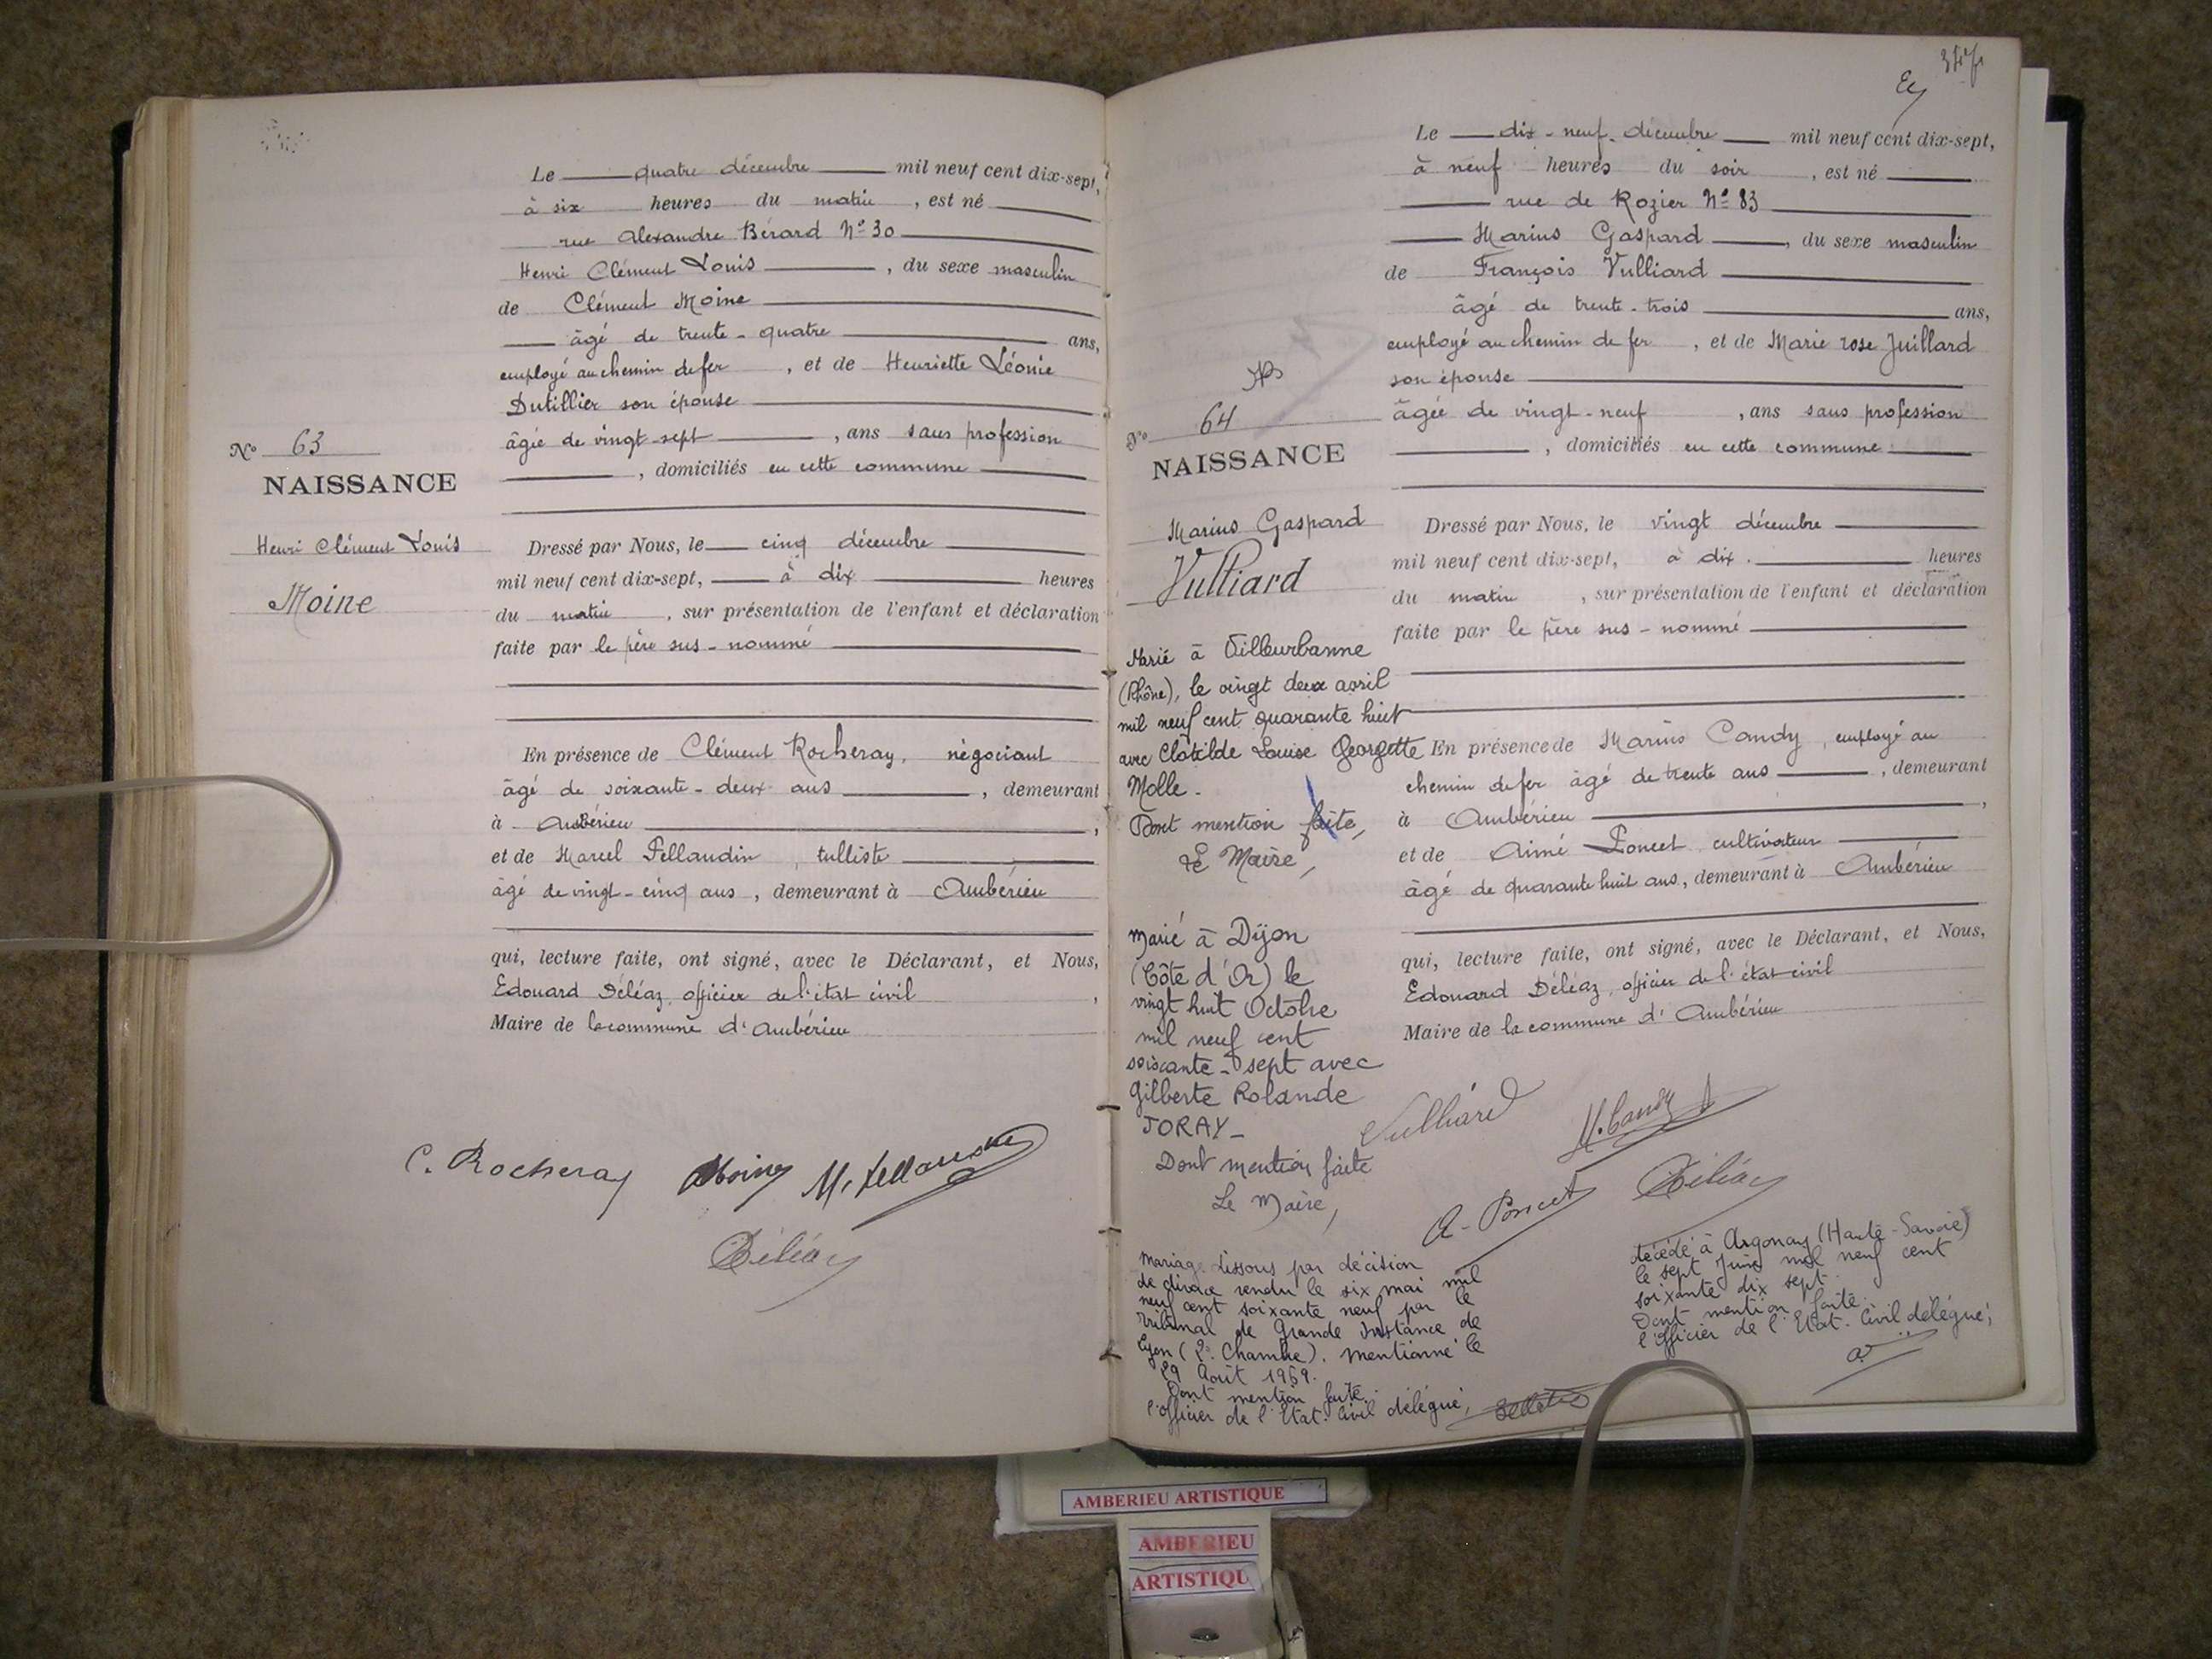 Le quatre décembre mil neuf cent dix-sept,
à six heures du matin, est né
rue Alexandre Bérard N° 30
Henri Clément Louis, du sexe masculin
de Clément Moine
âgé de trente-quatre ans,
employé au chemin de fer, et de Henriette Léonie
Dutillier son épouse
âgée de vingt-sept, ans sans profession
, domiciliés en cette commune
N° 63
NAISSANCE
Henri Clément Louis
Moine
Dressé par Nous, le cinq décembre
mil neuf cent dix-sept, à dix heures
du matin, sur présentation de l'enfant et déclaration
faite par le père sus-nommé
En présence de Clément Rocheray, négociant
âgé de soixante-deux ans, demeurant
à Ambérieu,
et de Marcel Pellaudin, tulliste
âgé de vingt-cinq ans, demeurant à Ambérieu
qui, lecture faite, ont signé, avec le Déclarant, et Nous,
Edouard Déléaz, officier de l'état civil,
Maire de la commune d'Ambérieu
C. Rocheray Moine
Déléaz
Le dix-neuf décembre mil neuf cent dix-sept,
à neuf heures du soir, est né
rue de Rozier N° 83
Marius Gaspard, du sexe masculin
de François Vulliard
âgé de trente-trois ans,
employé au chemin de fer, et de Marie rose Juillard
son épouse
âgée de vingt-neuf, ans sans profession
, domiciliés en cette commune
N° 64
NAISSANCE
Marius Gaspard
Vulliard
Marié à Villeurbanne
(Rhône), le vingt deux avril
mil neuf cent quarante huit
avec Clotilde Louise Georgette
Molle.
Dont mention faite,
Le Maire,
Marié à Dijon
(Côte d'Or) le
vingt huit Octobre
mil neuf cent
soixante-sept avec
Gilberte Rolande
JORAY_
Dont mention faite
Le Maire,
Mariage dissous par décision
de divorce rendu le six mai mil
neuf cent soixante neuf par le
Tribunal de Grande Instance de
Lyon (2e Chambre). Mentionné le
29 Août 1969.
Dont mention faite.
l'Officier de l'Etat-Civil délégué,
Dressé par Nous, le vingt décembre
mil neuf cent dix-sept, à dix heures
du matin, sur présentation de l'enfant et déclaration
faite par le père sus-nommé
En présence de Marius Candy, employé au
chemin de fer âgé de trente ans, demeurant
à Ambérieu,
et de Aimé Poncet cultivateur
âgé de quarante huit ans, demeurant à Ambérieu
qui, lecture faite, ont signé, avec le Déclarant, et Nous,
Edouard Déléaz, officier de l'état civil
Maire de la commune d'Ambérieu
Vulliard M. Candy
A. Poncet Déléaz
décédé à Argonay (Haute-Savoie)
le sept Juin mil neuf cent
soixante dix sept.
Dont mention faite.
l'Officier de l'Etat-Civil délégué,
AMBERIEU ARTISTIQUE
AMBERIEU
ARTISTIQU